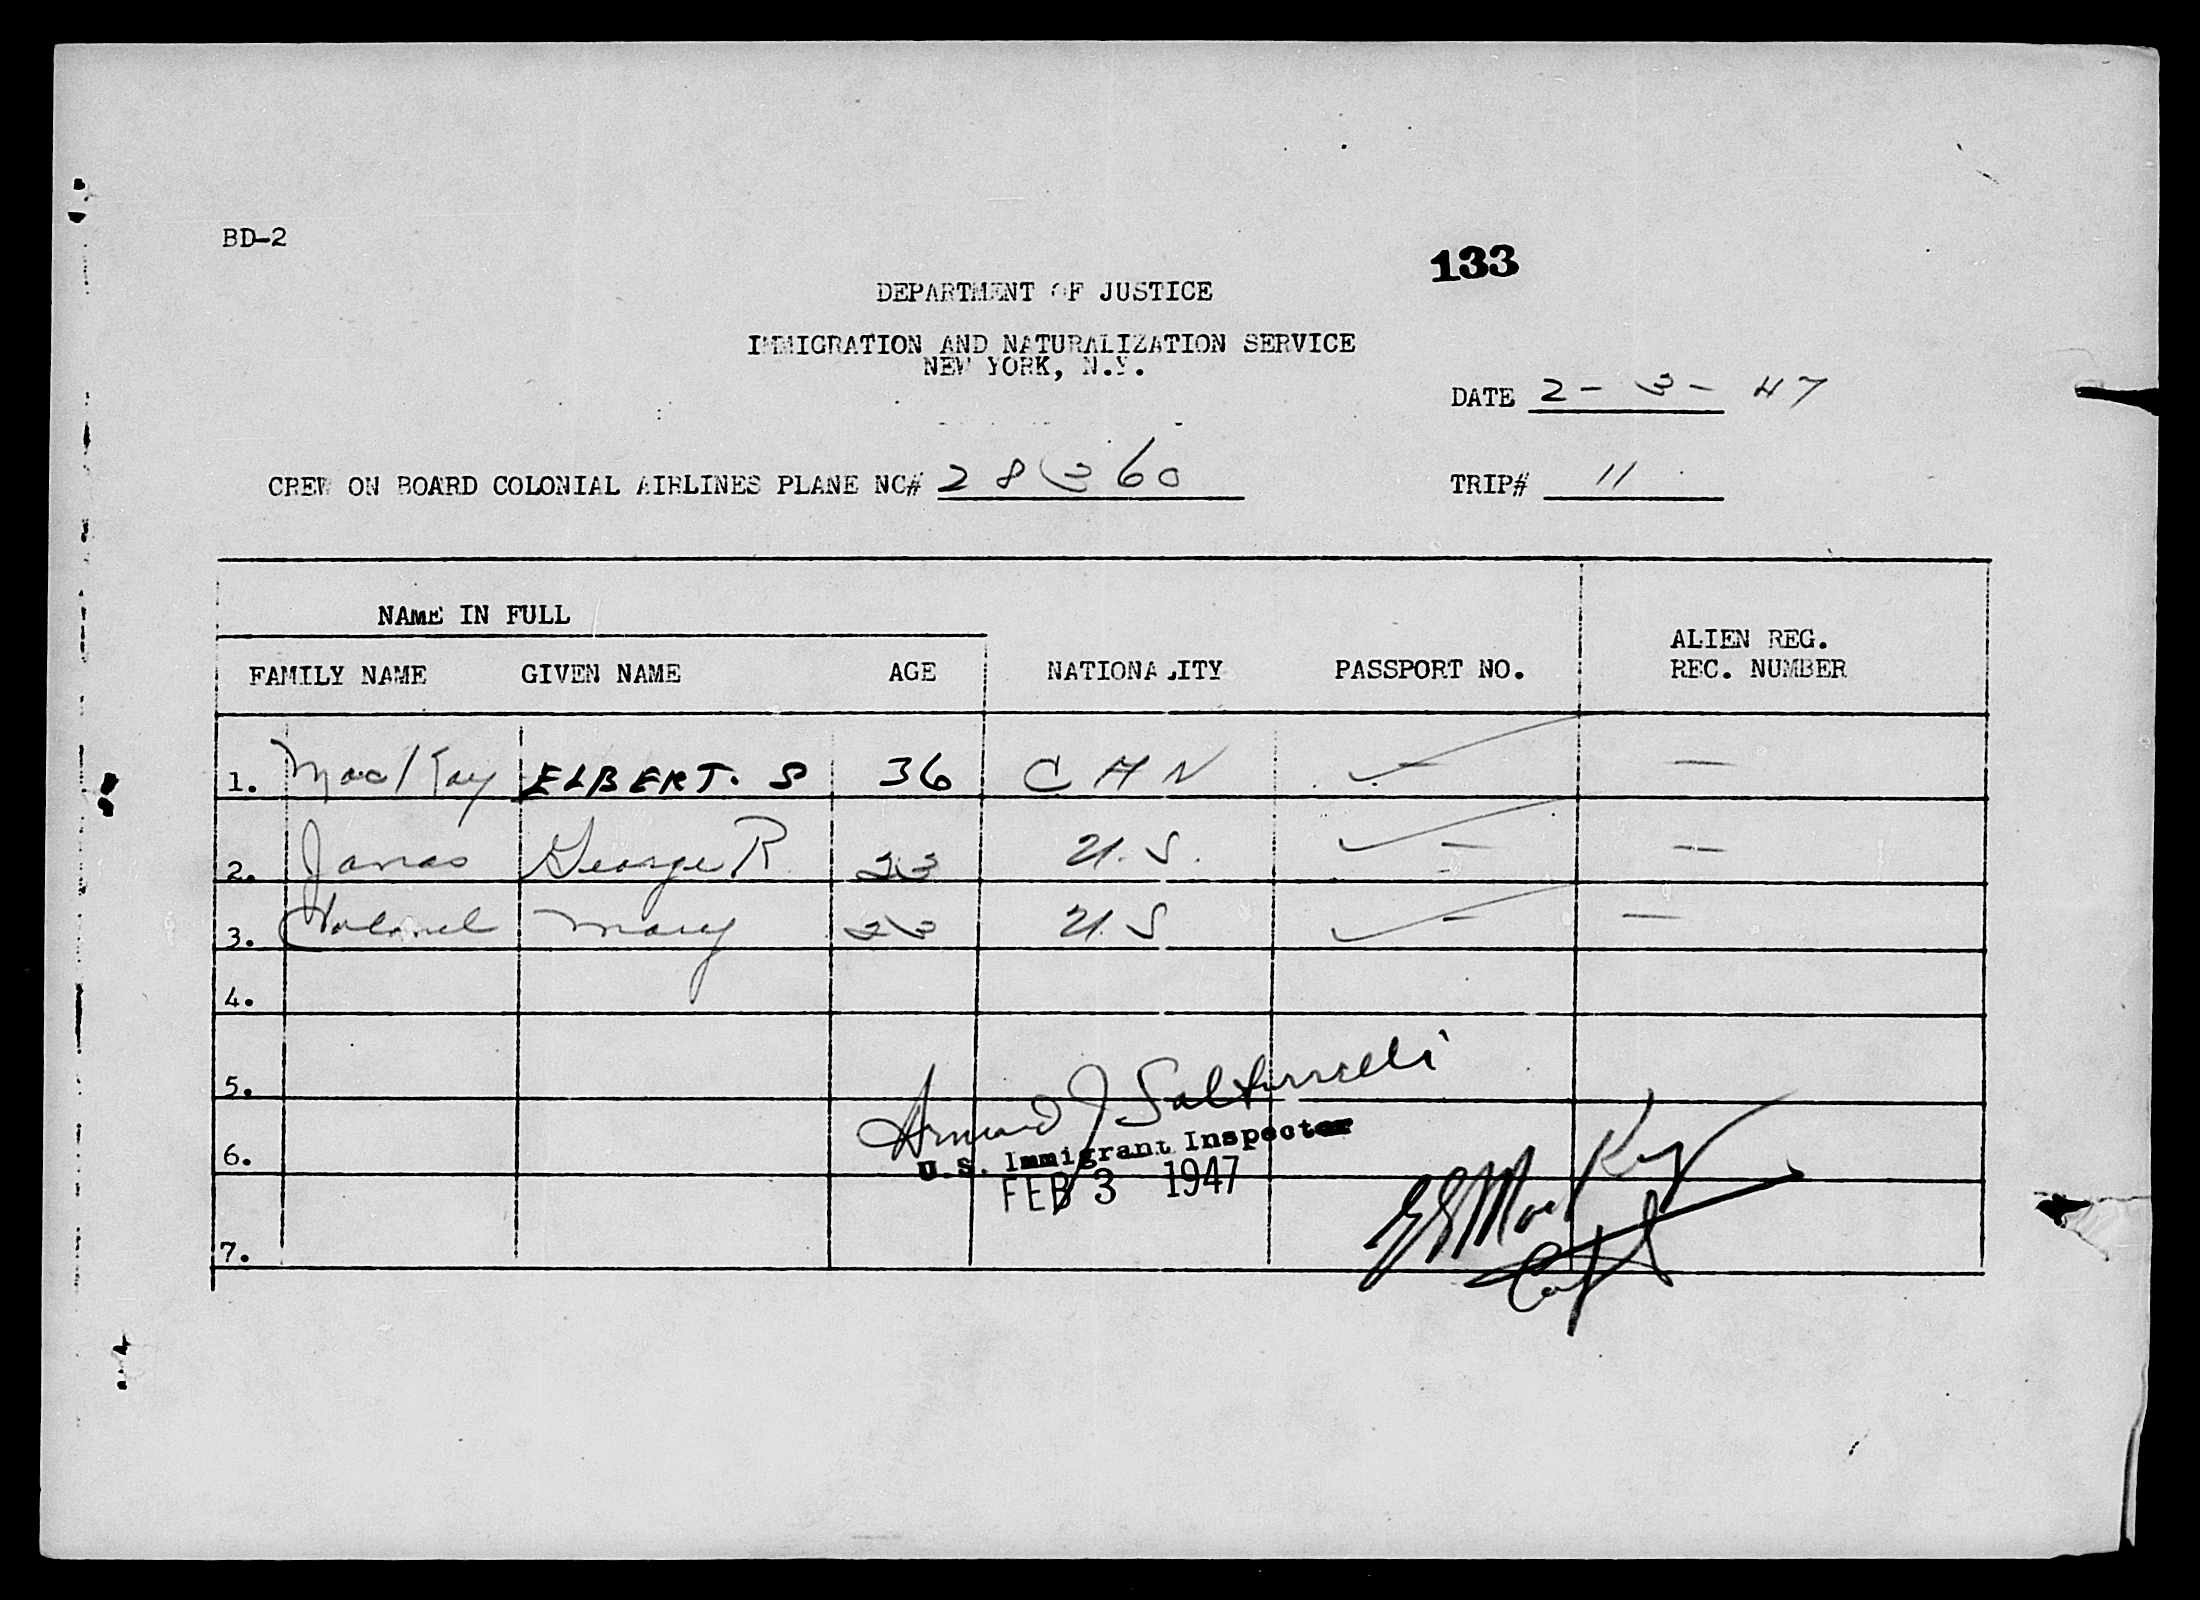 BD-2
133
DEPARTMENT OF JUSTICE
IMMIGRATION AND NATURALIZATION SERVICE
NEW YORK, N.Y.
DATE 2-3-47
CREW ON BOARD COLONIAL AIRLINES PLANE NC# 28360
TRIP# 11
NAME IN FULL
ALIEN REG.
FAMILY NAME GIVEN NAME AGE NATIONALITY PASSPORT NO. REC. NUMBER
1. MacKay ELBERT. S 36 CAN ✓ — —
2. George R 23 U.S. ✓ — —
3. Mary U.S ✓ — —
4.
5.
Armand J
6.
U.S. Immigrant Inspector
FEB 3 1947
ES MacKay
Capt
7.